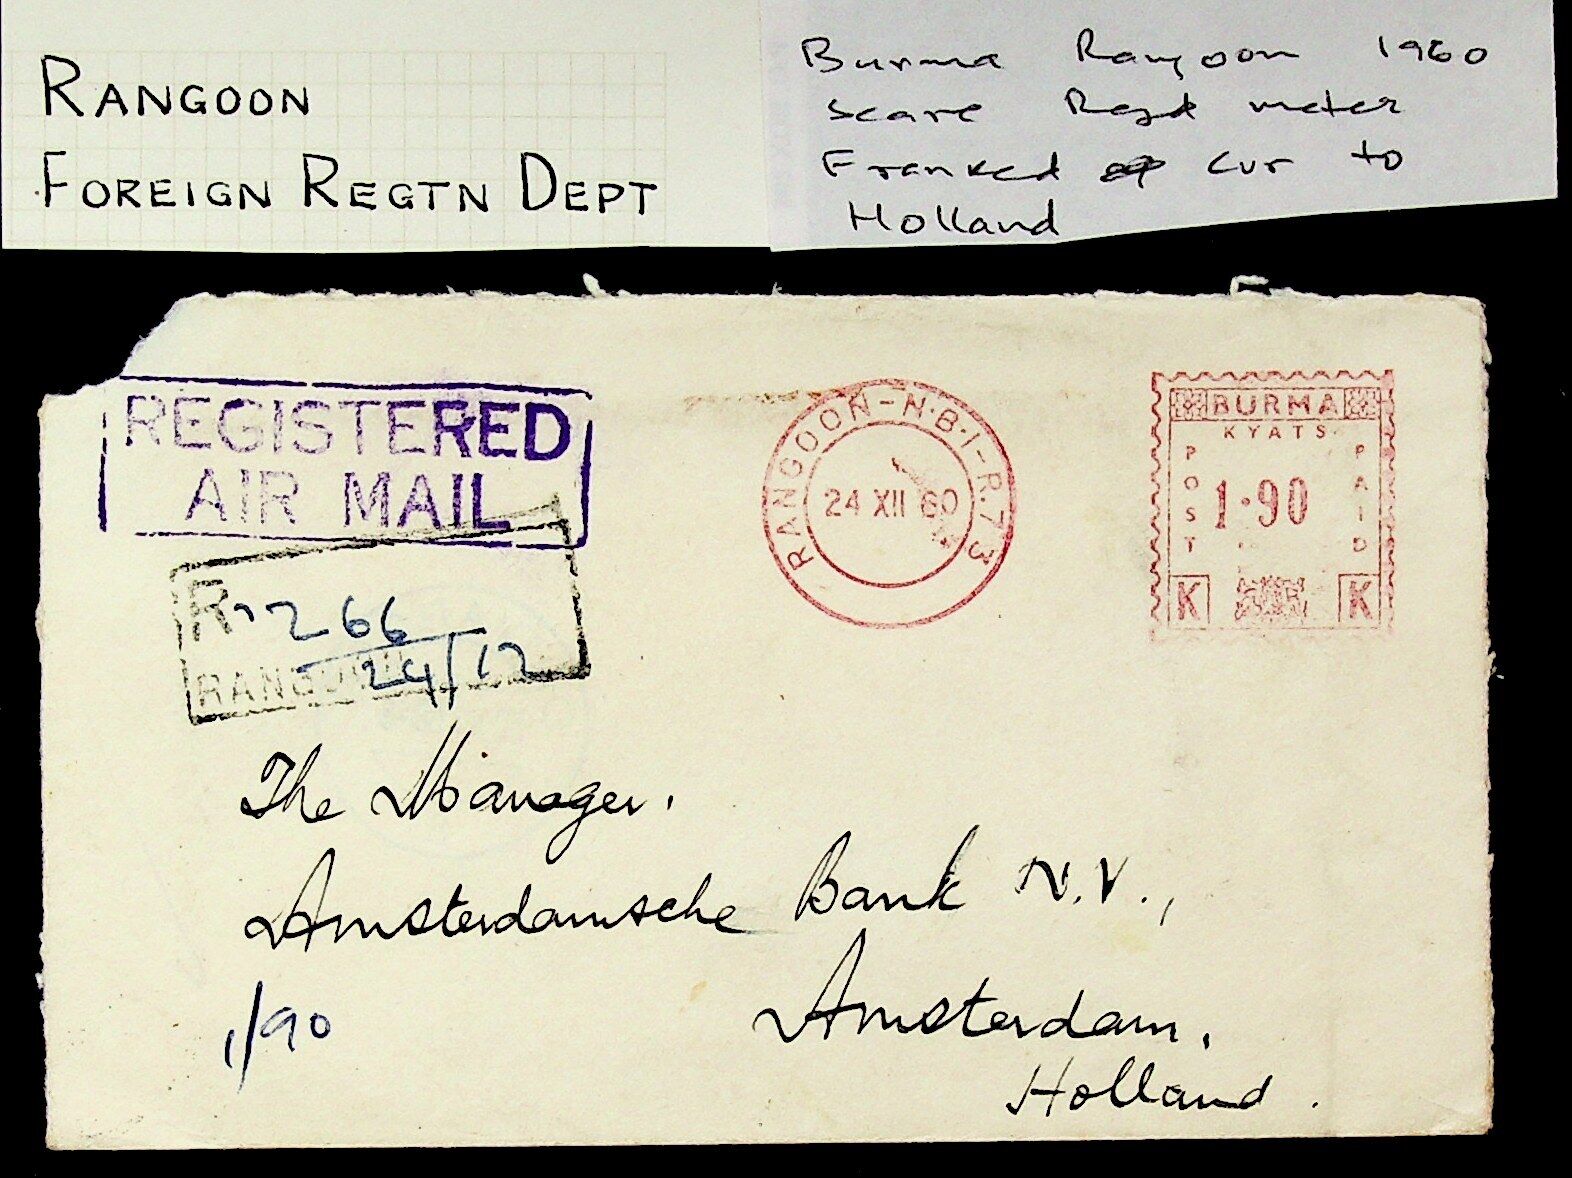 RANGOON
FOREIGN REGTN DEPT
Burma Rangoon 1960
scare Regd meter
Franked cvr to
Holland
REGISTERED
AIR MAIL
RANGOON-N.B.I-R.73
24 XII 60
BURMA
KYATS
POST
1.90
PAID
K K
R 266
24/12
RANGOON
The Manager.
Amsterdamsche Bank N.V.,
1/90
Amsterdam.
Holland.